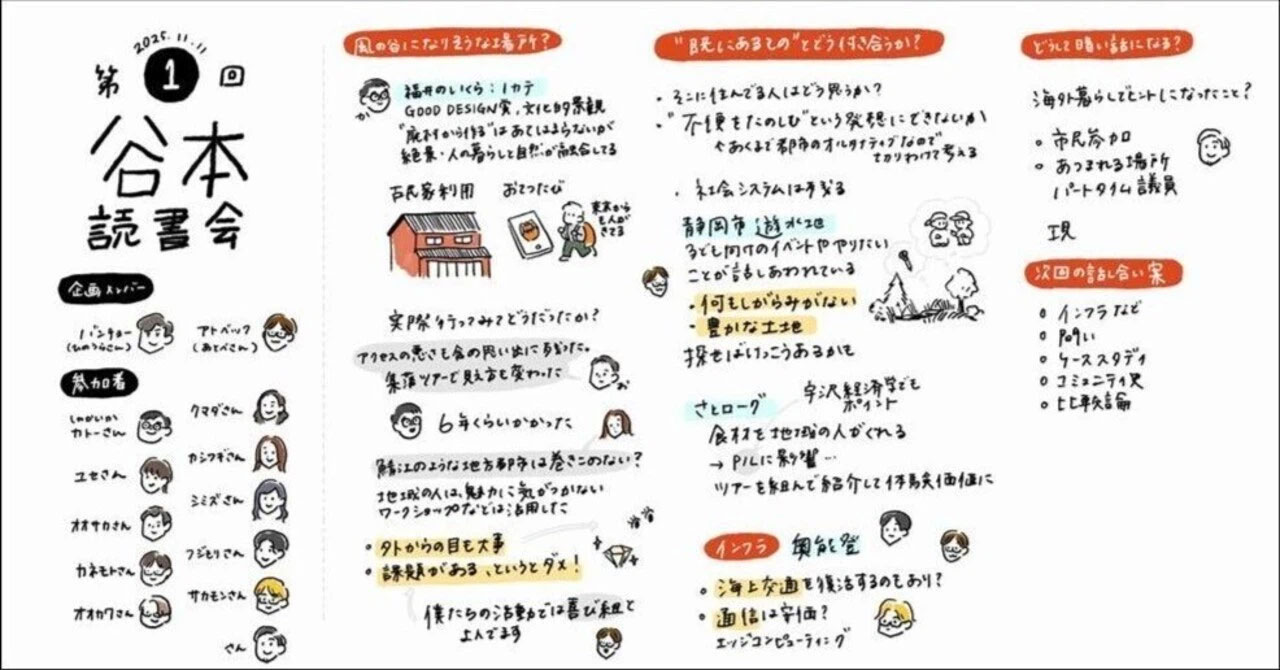 2025.11.11
第1回
谷本
読書会
企画メンバー
バンチョー
(ひのうらさん)
アトベック
(あとべさん)
参加者
しゃかいか
カトーさん
クマダさん
ユセさん
カシワギさん
オオサカさん
シミズさん
カネモトさん
フジモリさん
オオカワさん
サカモンさん
さん
風の谷になりそうな場所?
か
福井のいくら:1カテ
GOOD DESIGN賞、文化的景観
"廃村から作る"はあてはまらないが
絶景・人の暮らしと自然が融合してる
古民家利用
おてつたび
東京から
も人が
きてる
実際行ってみてどうだったか?
アクセスの悪さも含め思い出に残った。
集落ツアーで見え方も変わった
お
6年くらいかかった
鯖江のような地方都市は巻きこめない?
地域の人は、魅力に気がつかない
ワークショップなどは活用した
・外からの目も大事
・課題がある、というとダメ!
僕たちの活動では喜び組と
よんでます
"既にあるもの"とどう付き合うか?
・そこに住んでる人はどう思うか?
・"不便をたのしむ"という発想にできないか
あくまで都市のオルタナティブなので
きりわけて考える
・社会システムは残る
静岡市 遊水地
子ども向けのイベントややりたい
ことが話しあわれている
・何もしがらみがない
・豊かな土地
探せばけっこうあるかも
さとローグ
宇沢経済学でも
ポイント
食材を地域の人がくれる
→P/Lに影響…
ツアーを組んで紹介して体験価値に
インフラ
奥能登
・海上交通を復活するのもあり?
・通信は安価?
エッジコンピューティング
どうして暗い話になる?
海外暮らしでヒントになったこと?
・市民参加
・あつまれる場所
パートタイム議員
次回の話し合い案
・インフラなど
・問い
・ケーススタディ
・コミュニティ史
・比較論